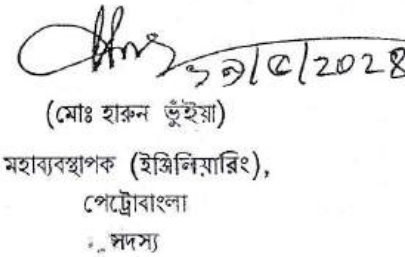 ১৯/৫/2028
(মোঃ হারুন ভুঁইয়া)
মহাব্যবস্থাপক (ইঞ্জিনিয়ারিং),
পেট্রোবাংলা
সদস্য